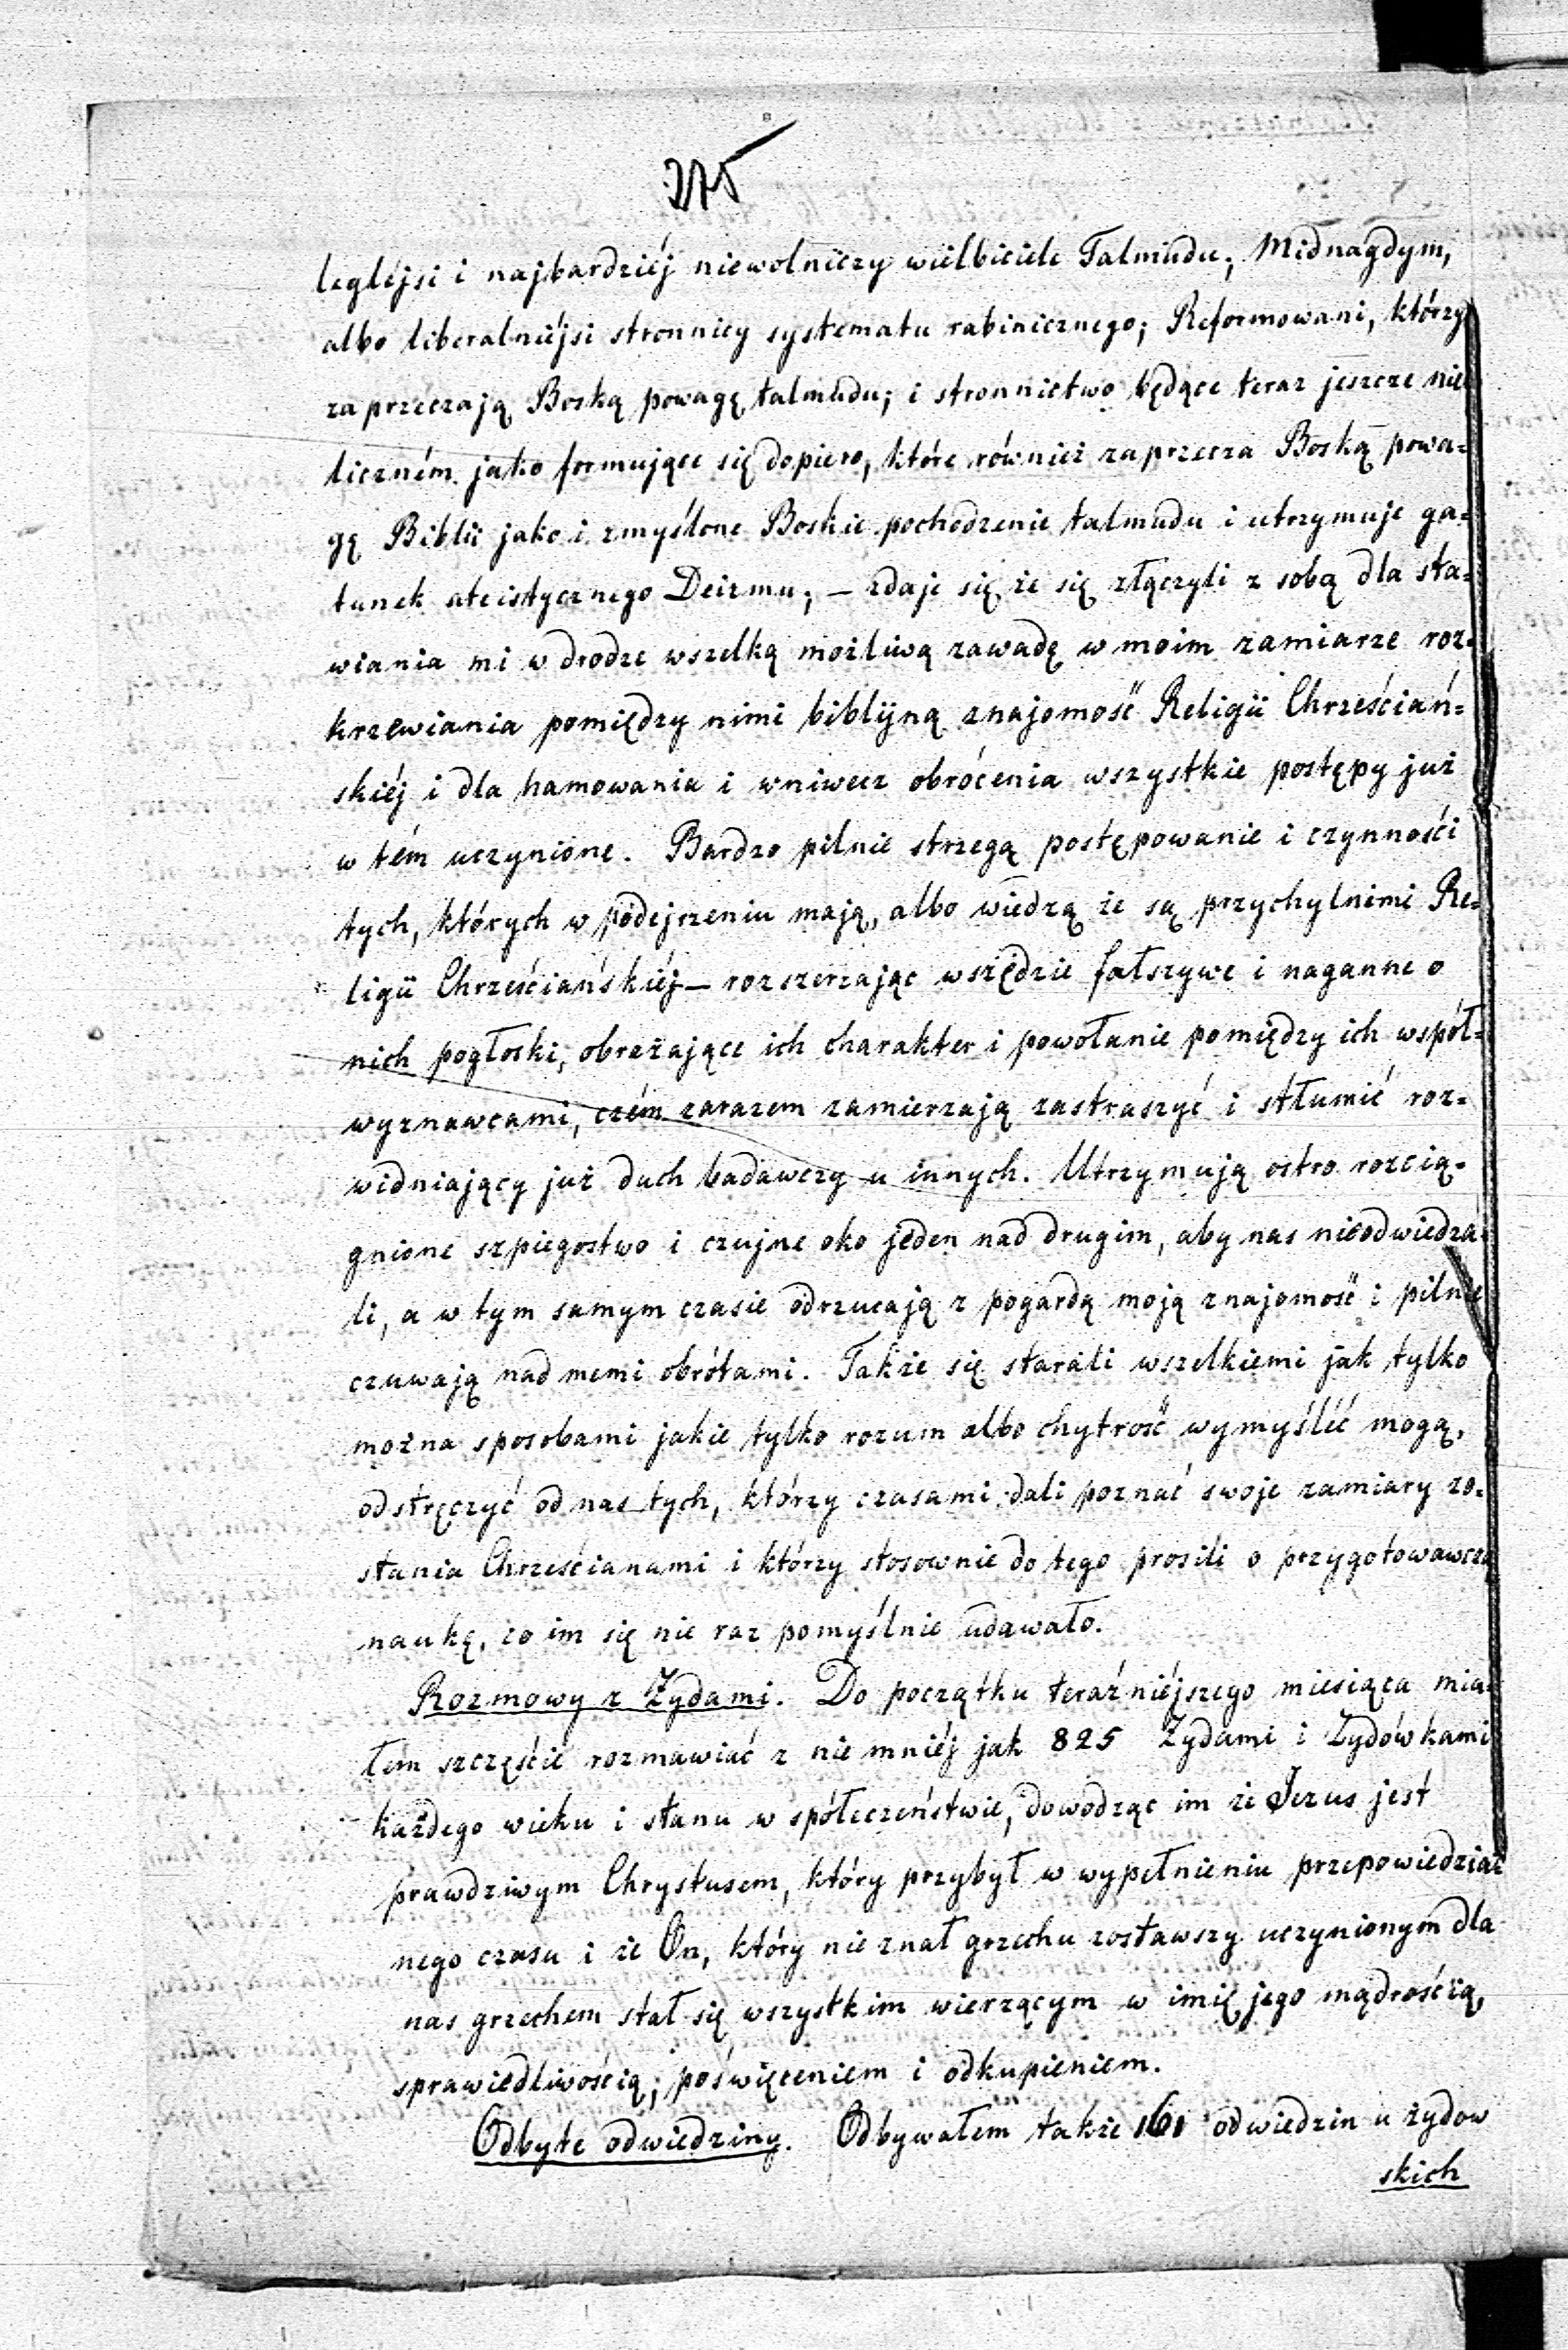 275
leglejsi i najbardziéj niewolniczy wielbiciele Talmudu; Midnagdym,
albo liberalniéjsi stronnicy systematu rabinicznego; Reformowani, którzy
zaprzeczają Boską powagę talmudu; i stronnictwo będące teraz jeszcze nie
liczném jako formujące się dopiero, które również zaprzecza Boską powa=
gę Biblii jako i zmyślone Boskie pochodzenie talmudu i utrzymuje ga=
tunek ateistycznego Deizmu; — zdaje się że się złączyli z sobą dla sta=
wiania mi w drodze wszelką możliwą zawadę w moim zamiarze roz=
krzewiania pomiędzy nimi biblijną znajomość Religii Chrześciań=
skiéj i dla hamowania i wniwecz obrócenia wszystkie postępy już
w tém uczynione. Bardzo pilnie strzegą postępowanie i czynności
tych, których w podejrzeniu mają, albo wiedzą że są przychylnimi Re=
ligii Chrześciańskiéj — rozszerzając wszędzie fałszywe i naganne o
nich pogłoski, obrażające ich charakter i powołanie pomiędzy ich współ=
wyznawcami, czém zarazem zamierzają zastraszyć i stłumić roz=
widniający już duch badawczy u innych. Utrzymują ostro rozcią=
gnione szpiegostwo i czujne oko jeden nad drugim, aby nas nieodwiedza=
li, a w tym samym czasie odrzucają z pogardą moją znajomość i pilnie
czuwają nad memi obrótami. Także się starali wszelkiemi jak tylko
można sposobami jakie tylko rozum albo chytrość wymyślić mogą,
odstręczyć od nas tych, którzy czasami dali poznać swoje zamiary zo=
stania Chrześcianami i którzy stosownie do tego prosili o przygotowawczą
naukę, co im się nie raz pomyślnie udawało.
Rozmowy z Żydami. Do początku teraźniéjszego miesiąca mia=
łem szczęście rozmawiać z nie mniéj jak 825 Żydami i Żydówkami
każdego wieku i stanu w spółeczeństwie, dowodząc im że Jezus jest
prawdziwym Chrystusem, który przybył w wypełnieniu przepowiedzia=
nego czasu i że On, który nie znał grzechu zostawszy uczynionym dla
nas grzechem stał się wszystkim wierzącym w imię jego mądrością,
sprawiedliwością; poświęceniem i odkupieniem.
Odbyte odwiedziny. Odbywałem także 161 odwiedzin u żydow
skich